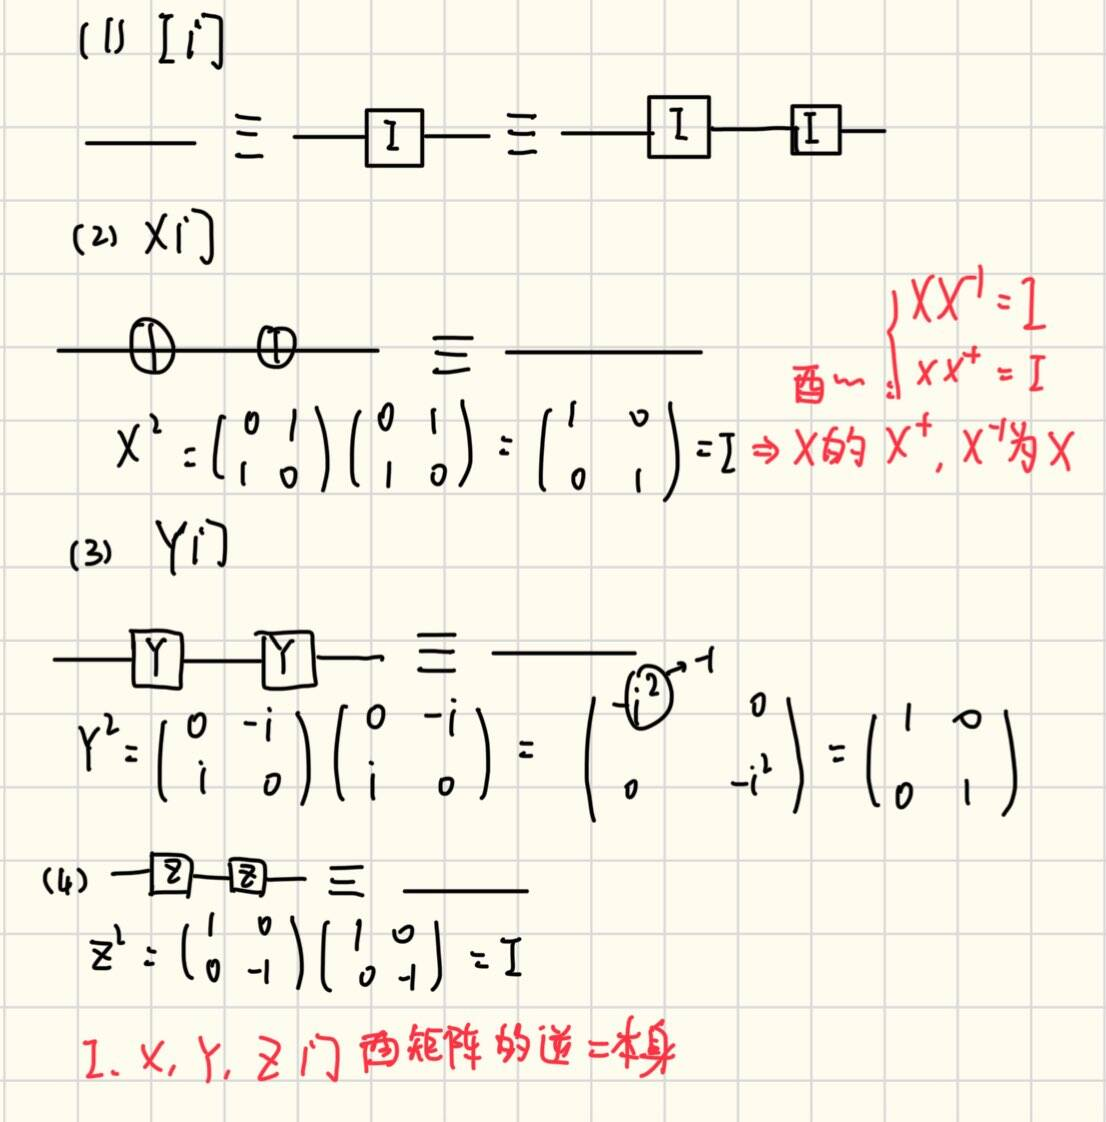 (1) I门
≡ I ≡ I I
(2) X门
≡
XX⁻¹ = I
酉~ XX⁺ = I
X² = (0 1; 1 0)(0 1; 1 0) = (1 0; 0 1) = I ⇒ X的 X⁺, X⁻¹为X
(3) Y门
Y Y ≡
Y² = (0 -i; i 0)(0 -i; i 0) = (-i² 0; 0 -i²) = (1 0; 0 1)
→ -1
(4) Z Z ≡
Z² = (1 0; 0 -1)(1 0; 0 -1) = I
I. X, Y, Z门 酉矩阵的逆=本身